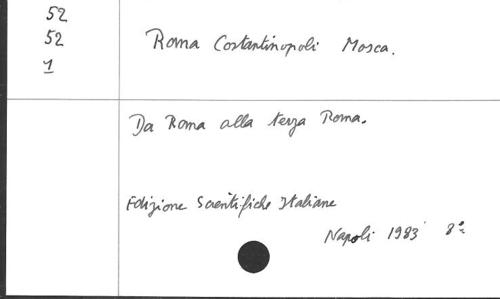 52
52
1
Roma Costantinopoli Mosca.
Da Roma alla terza Roma.
Edizione Scientifiche Italiane
Napoli 1983 8°